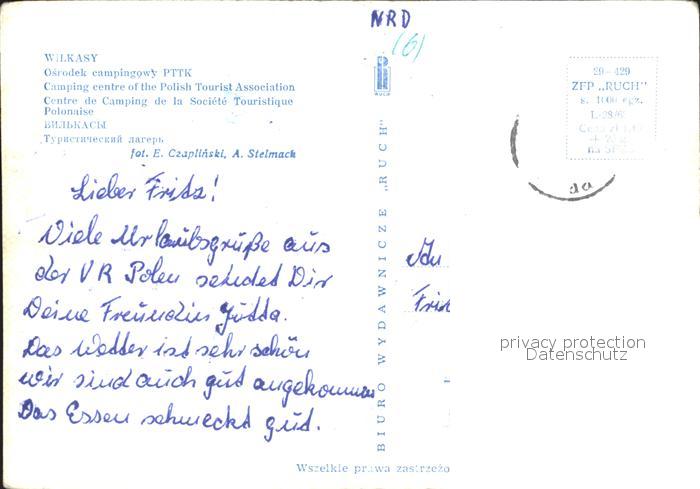 NRD
(6)
WILKASY
Ośrodek campingowy PTTK
Camping centre of the Polish Tourist Association
Centre de Camping de la Société Touristique
Polonaise
ВИЛЬКАСЫ
Туристический лагерь
fot. E. Czapliński, A. Stelmach
Lieber Fritz!
Viele Urlaubsgrüße aus
der VR Polen sendet Dir
Deine Freundin Jutta.
Das Wetter ist sehr schön
wir sind auch gut angekommen
Das Essen schmeckt gut.
RUCH
BIURO WYDAWNICZE „RUCH"
29-429
ZFP „RUCH"
s. 1000 egz.
An
Fritz
privacy protection
Datenschutz
Wszelkie prawa zastrzeżo